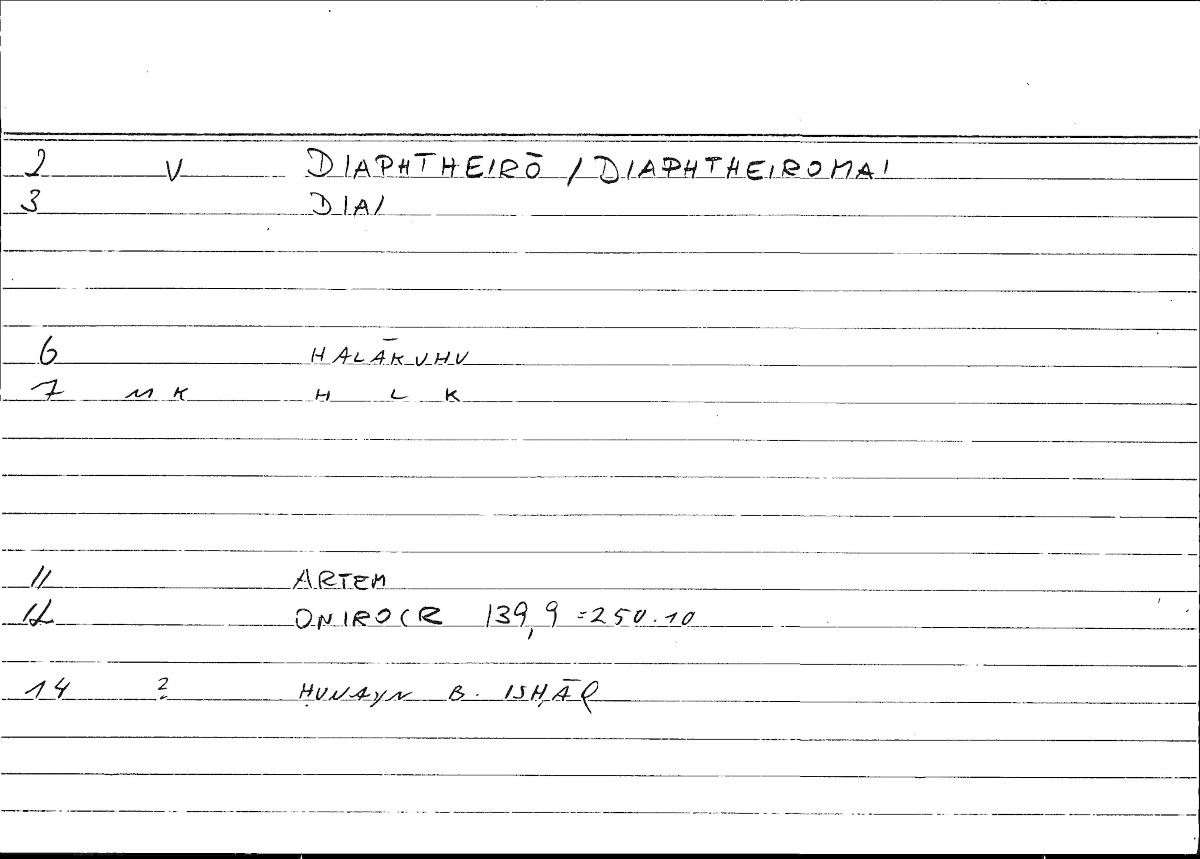 2 V DIAPHTHEIRŌ / DIAPHTHEIROMAI
3 DIAI
6 HALĀKUHU
7 MK H L K
11 ARTEM
12 ONIROCR 139,9 =250.10
14 ? ḤUNAYN B. ISḤĀQ